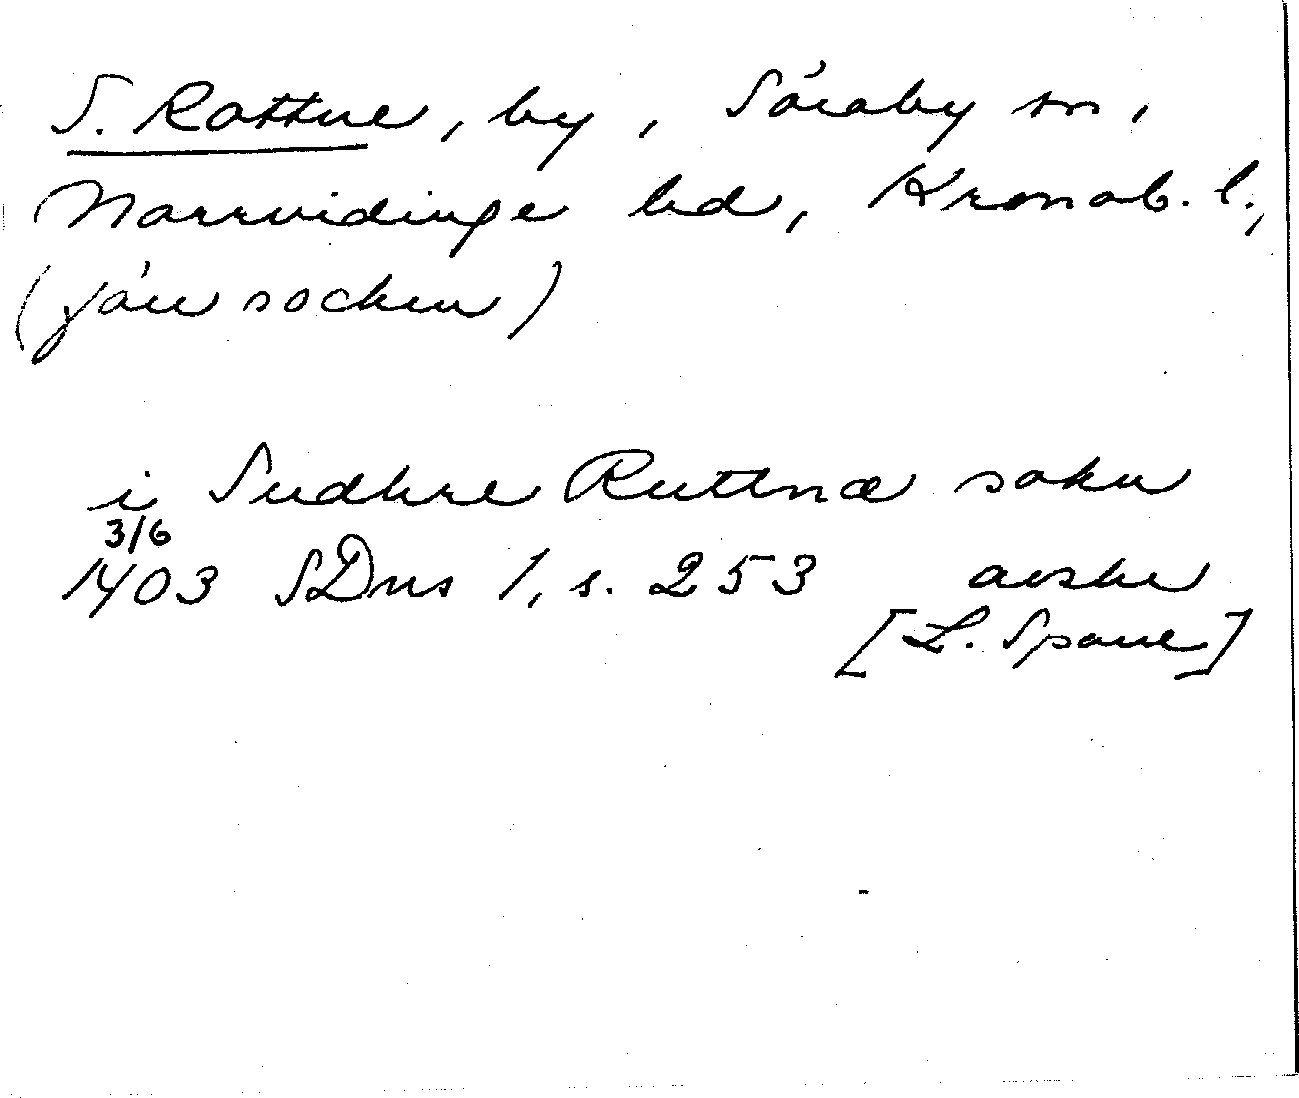 S. Rottne, by, Söraby sn,
Norrvidinge hd, Kronob. l.,
(jän socken)
i Sudhre Ruttnæ sokn
3/6
1403 SDns 1, s. 253 avskr
[L. Spane]